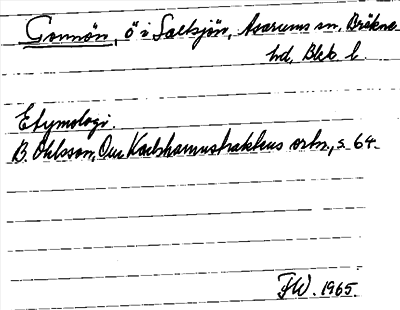 Gonnön, ö i Saltsjön, Asarums sn, Bräkne-
hd, Blek l.
Etymologi.
B. Ohlsson, Om Karlshamnstraktens ortn., s. 64.
FW. 1965.